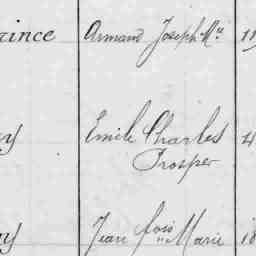 rince Armand Joseph Mie
Emile Charles
Prosper
Jean fois Marie